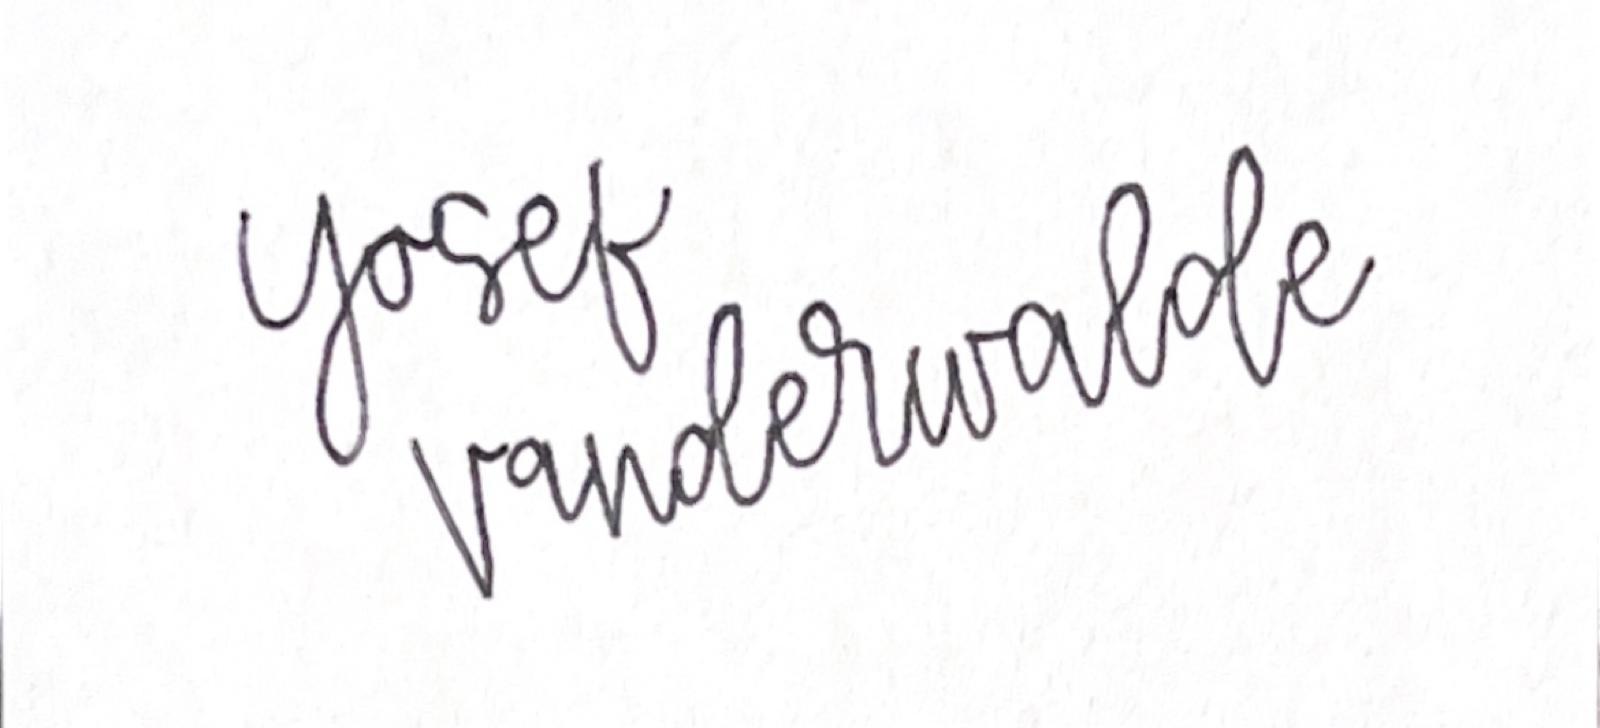 Yosef
vanderwalde